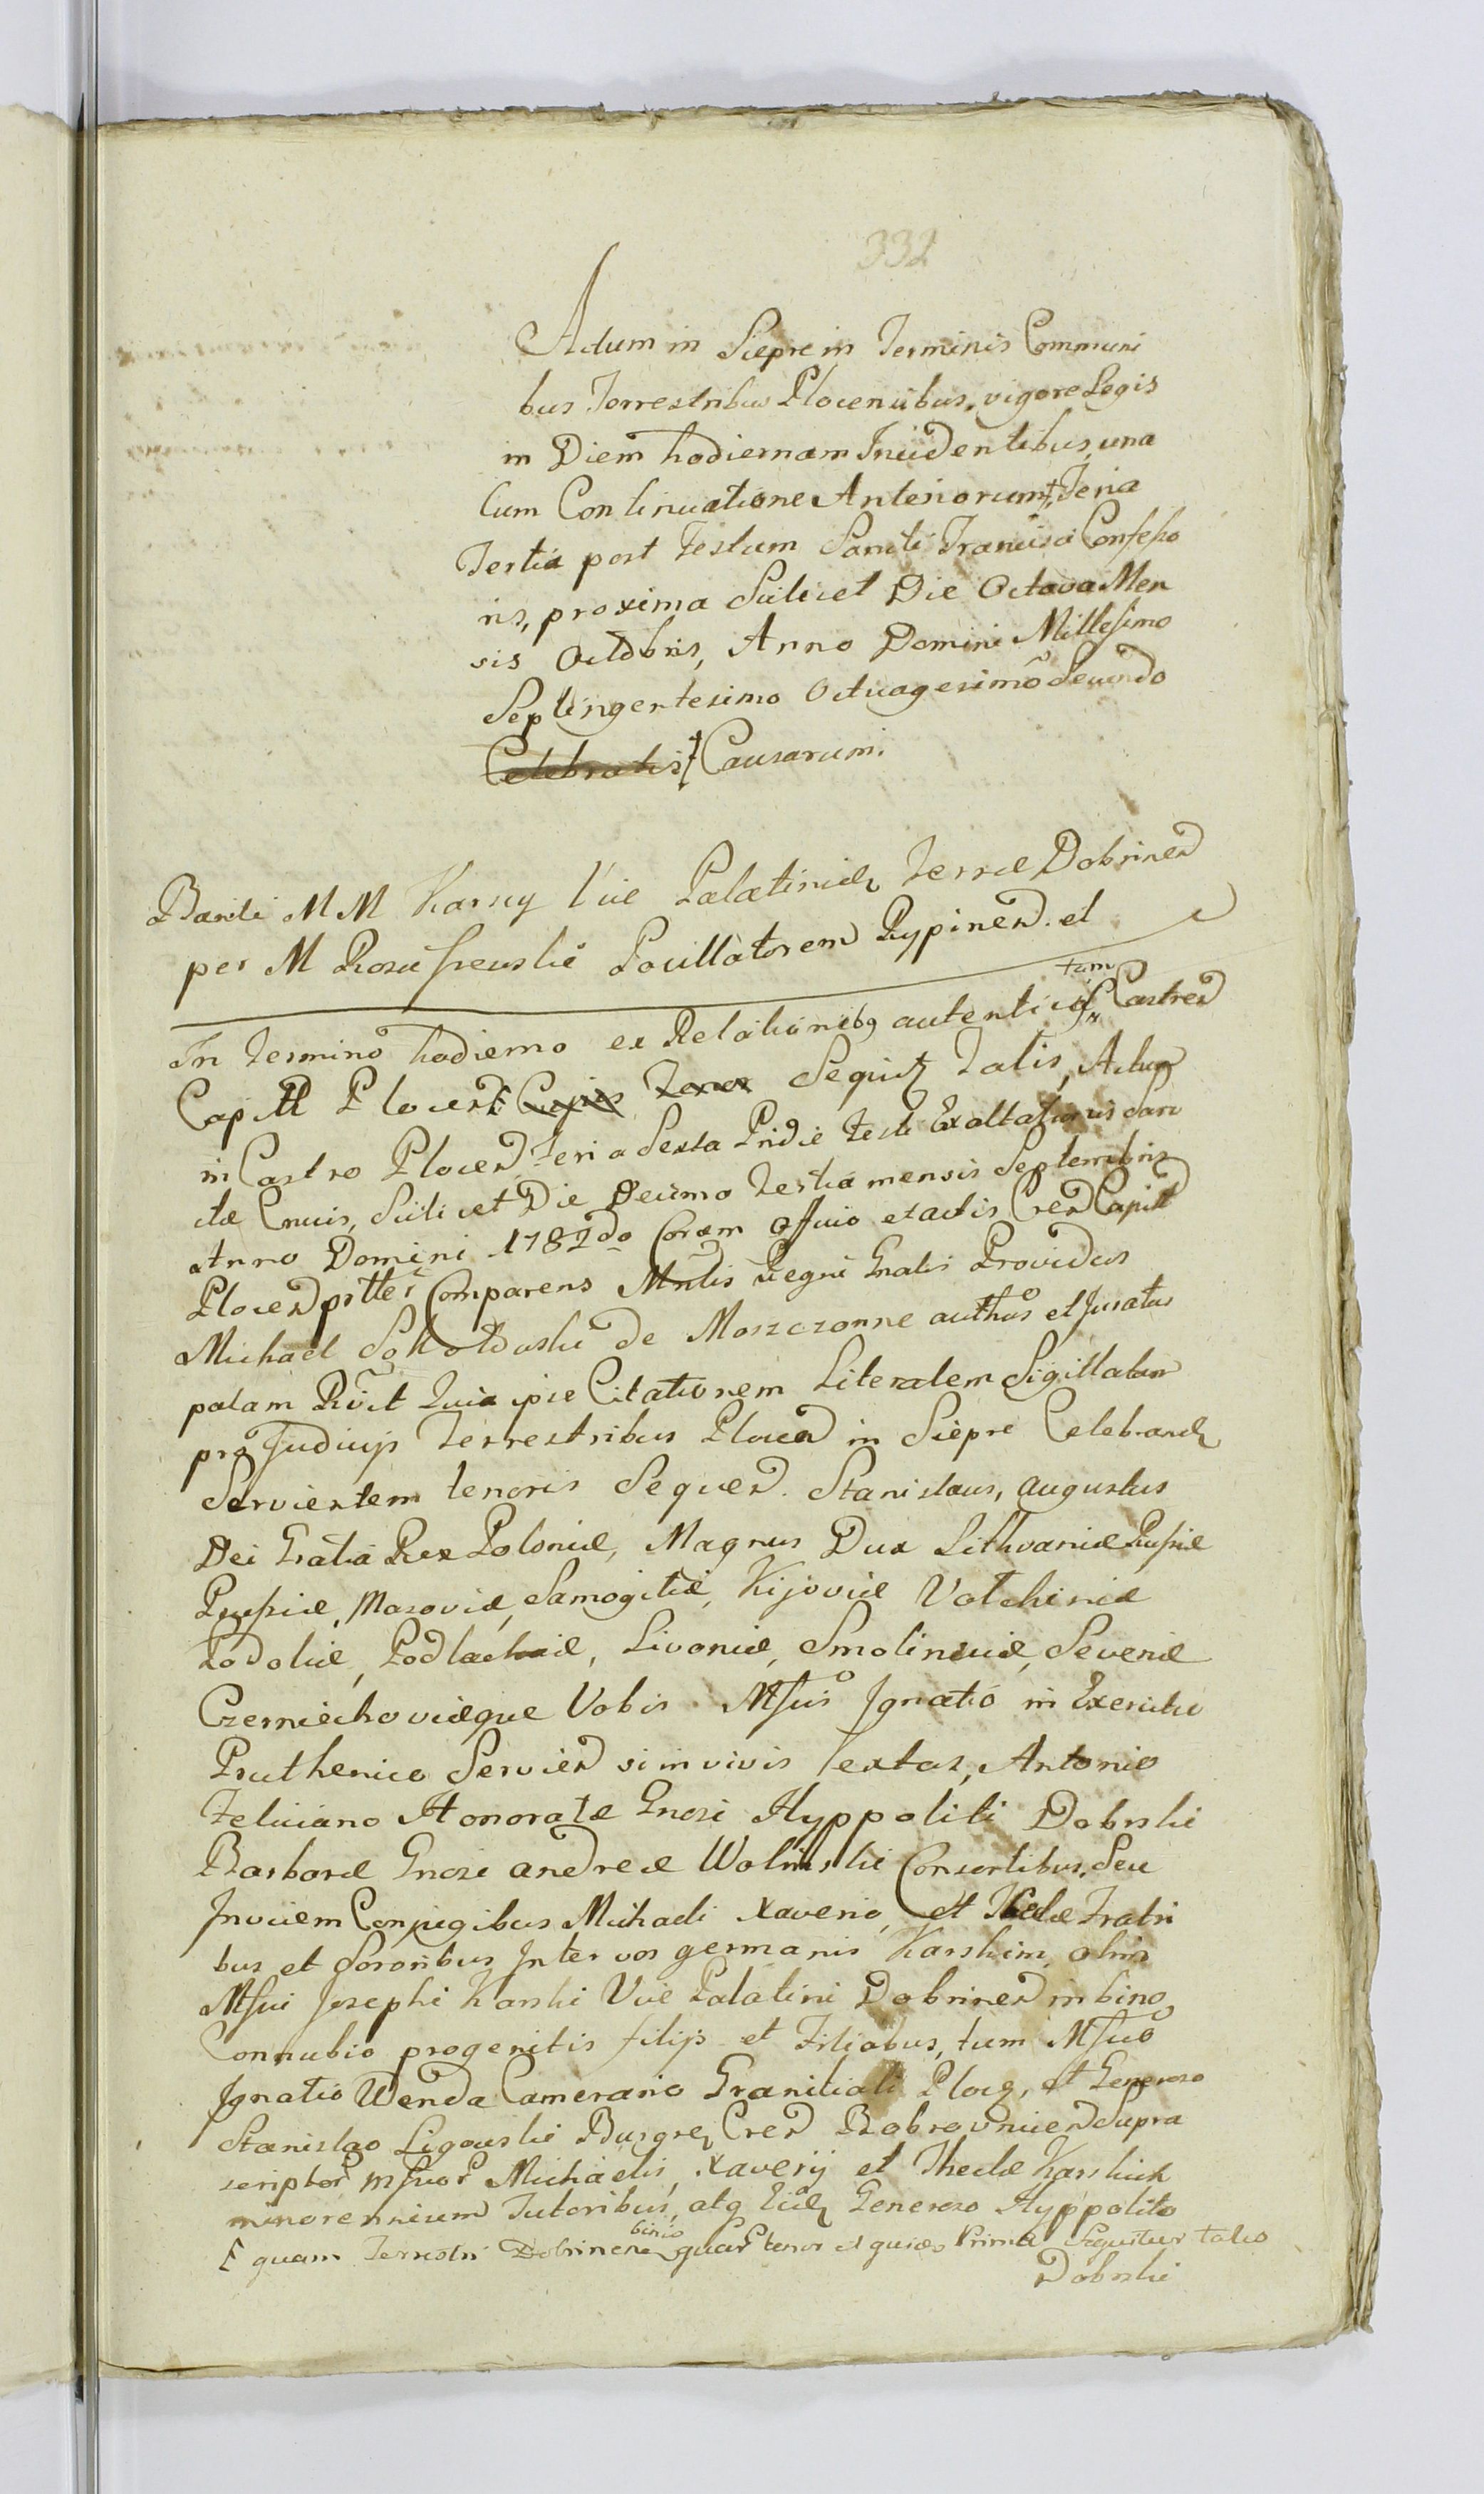 332
Actum in Siepre in Terminis Communi
bus Terrestribus Plocensibus, vigore Legis
in Diem hodiernam Incidentibus, una
Cum Continuatione Anteriorum ‡ Feria
Tertia post Festum Sancti Francisci Confesso
ris, proxima Scilicet Die Octava Men
sis Octobris, Anno Domini Millesimo
Septingentesimo Octuagesimo Secundo
Celebratis ‡ Causarum.
Baniti MM Karscy Vice Palatinid Terræ Dobrinen
per M Pocillatorem Rypinen. et
In Termino hodierno ex Relationibq autenticis tam Castren
Capitt Plocen Cujus Tenor Sequit Talis, Actum
in Castro Plocen Feria Sexta Pridie Festi Exaltationis San
ctæ Crucis, Scilicet Die Decima Tertia mensis Septembris
Anno Domini 1782do Coram Officio et actis Cren Capitt
Plocen prtter Comparens Mnlis Regni Gnalis Providus
Michael de Moszczonne authus et Juratus
palam Rvit Quia ipse Citationem Literalem Sigillatam
pro Judicijs Terrestribus Plocen in Siepre Celebrand
Servientem tenoris Sequen. Stanislaus, Augustus
Dei Gratia Rex Poloniæ, Magnus Dux Lithvaniæ Russiæ
Prussiæ, Mazoviæ, Samogitiæ, Kijoviæ Volchiniæ
Podoliæ, Podlachiæ, Livoniæ, Smolinsciæ, Severiæ
Czerniechoviæque Vobis Mfcis Ignatio in Exercitu
Pruthenico Servien si in vivis extas, Antonio
Feliciano Honoratæ Gnosi Hyppoliti Dobrski
Barbaræ Gnosi Andreæ Wolinski Consortibus, Seu
Invicem Conjugibus Michaeli Xaverio, et Theclæ Fratri
bus et Sororibus Inter vos germanis Karskim, olim
Mfci Josephi Karski Vice Palatini Dobrinen in bino
Connubio progenitis filijs et Filiabus, tum Mfco
Ignatio Wenda Camerario Granitiali Ploc, et Generoso
Stanislao Ligowski Burgr Cren Bobrovnicen Supra
scriptor Mfcor Michaelis, Xaverij et Theclæ Karskich
minorennium Tutoribus, atq Generoso Hyppolito
quam Terrestri Dobrinen binis quar tenor et quidem Prima Sequitur talis
Dobrski